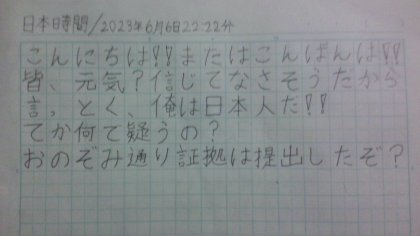 日本時間/2023年6月6日22:22分
こんにちは!!またはこんばんは!!
皆、元気?信じてなさそうだから
言。とく、俺は日本人だ!!
てか何で疑うの?
おのぞみ通り証拠は提出したぞ?